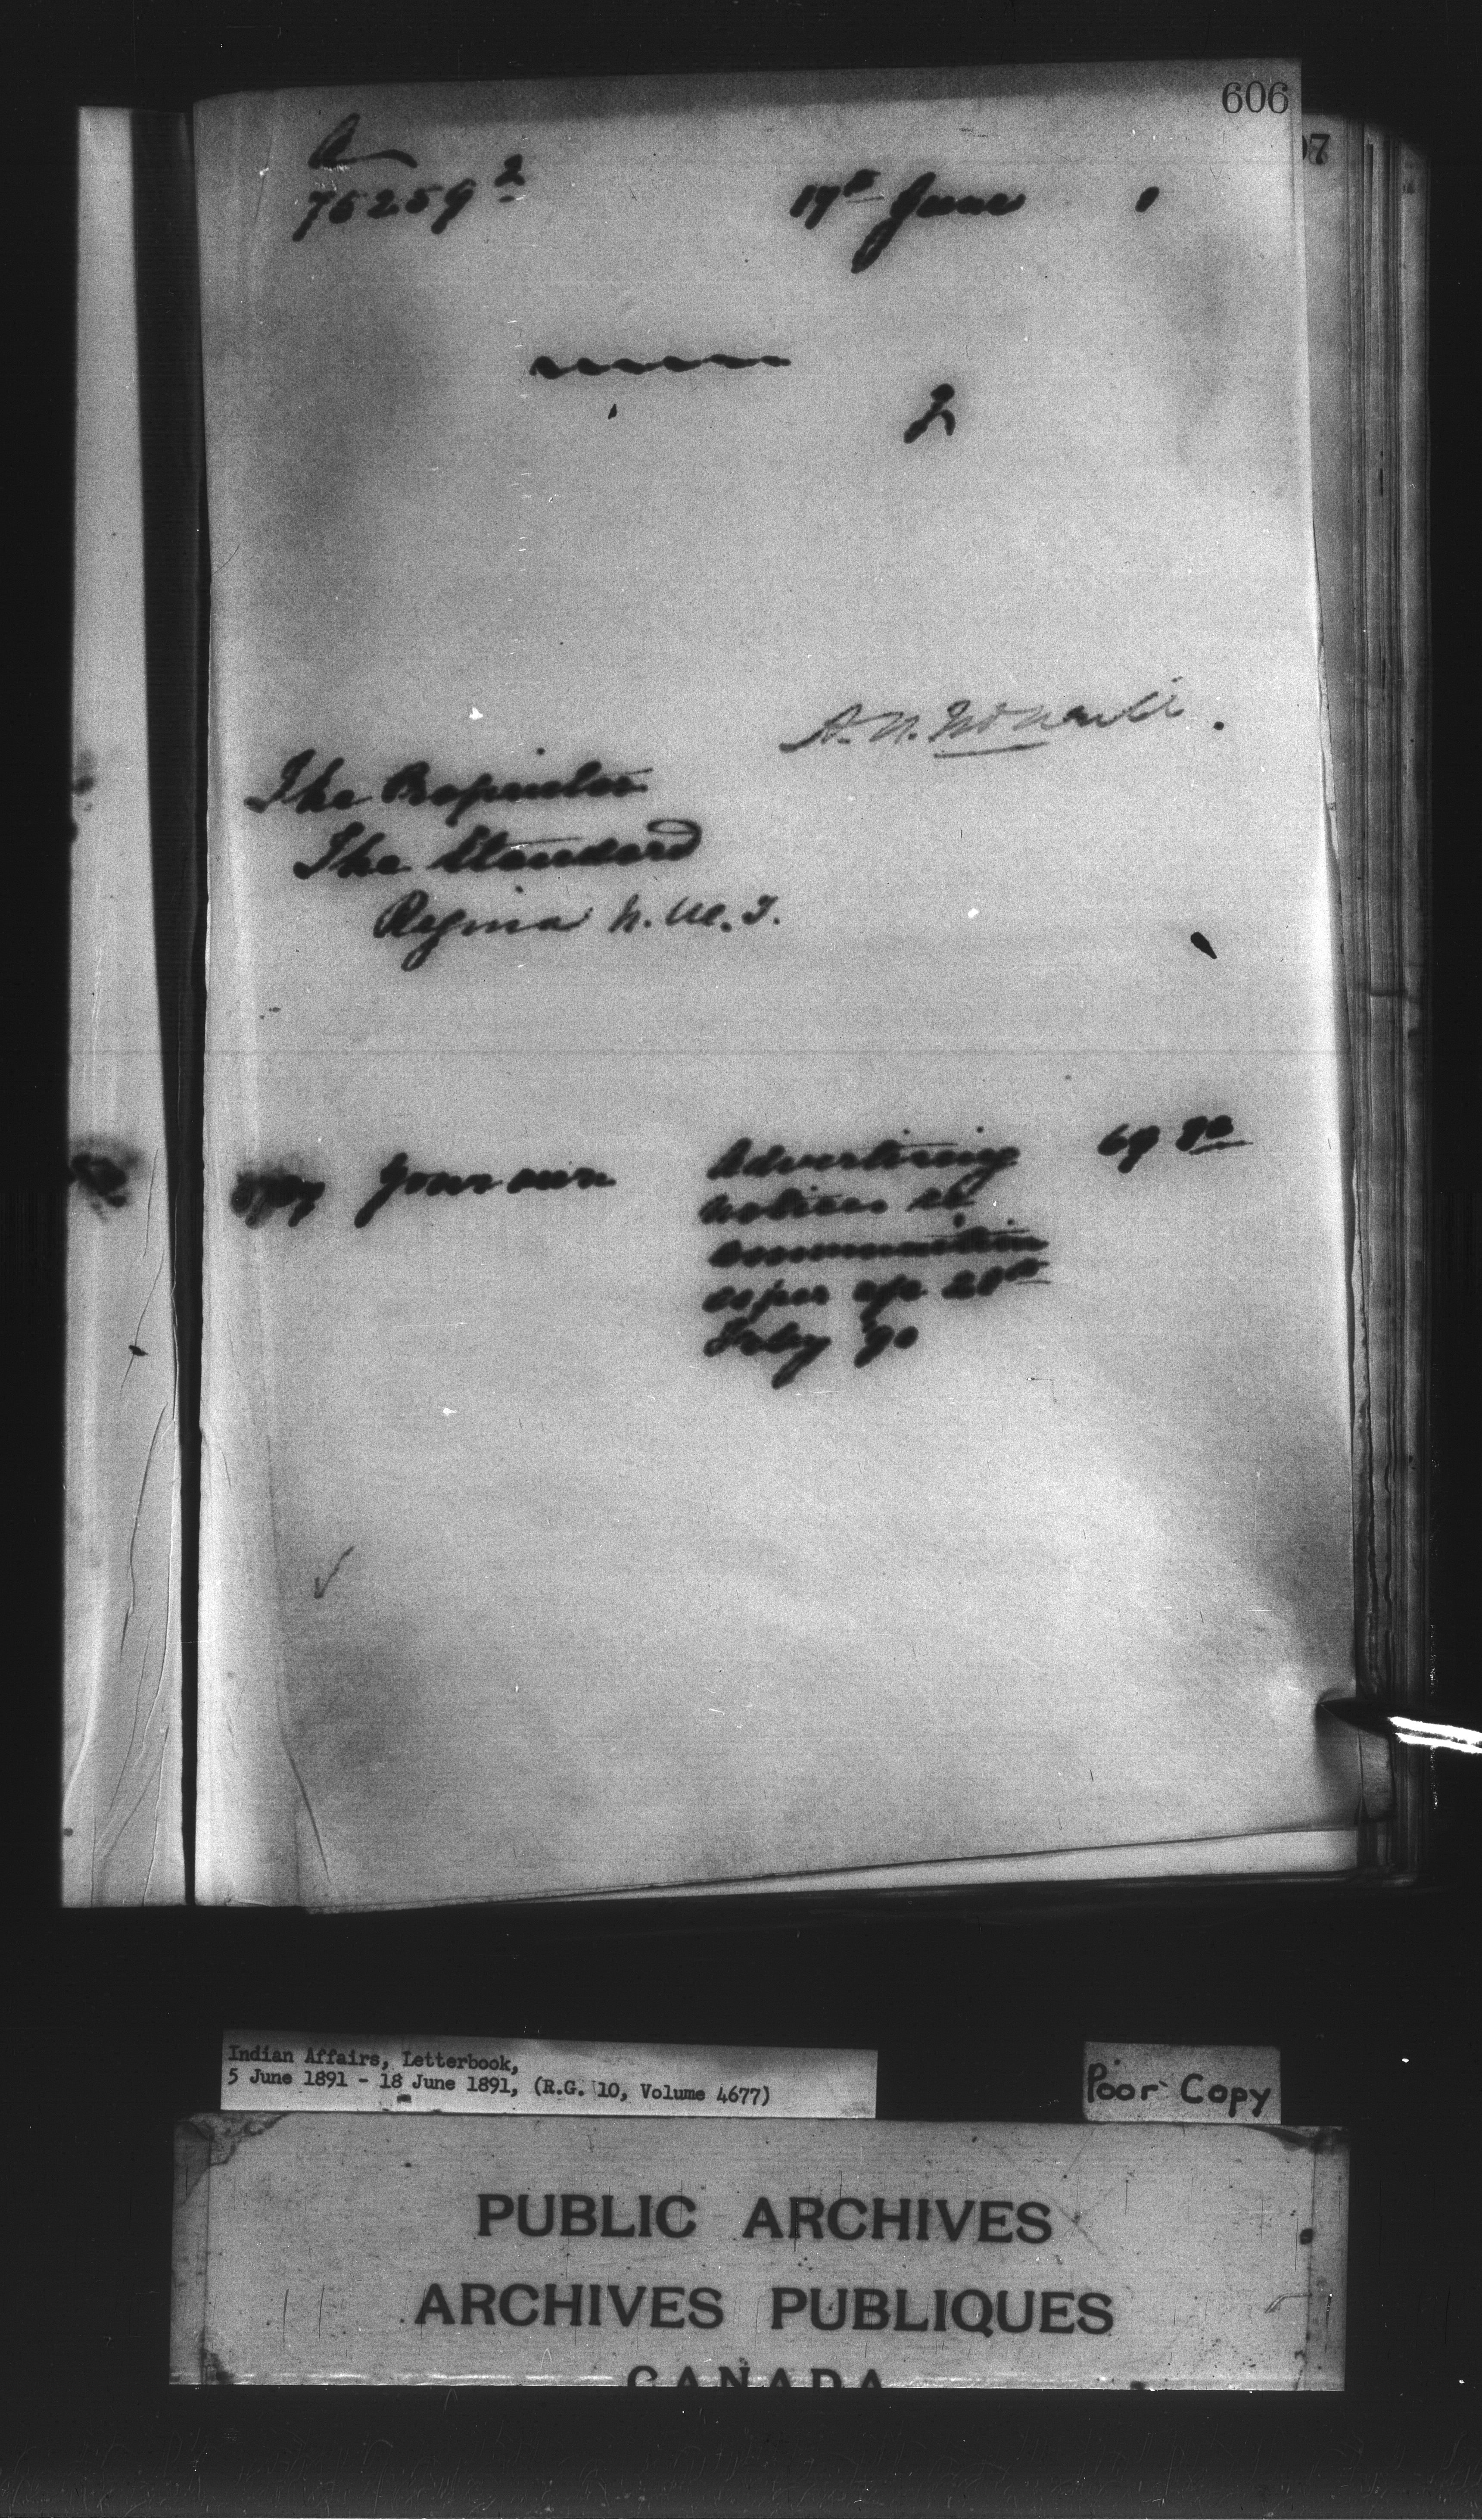 606
07
A
75259²
17th June 1
A. N. McNeill.
The Proprietor
The Standard
Regina N. W. T.
Your own
Advertising
notices re
ammunition
as per a/c 28th
Feby '90
69
Indian Affairs, Letterbook,
5 June 1891 - 18 June 1891, (R.G. 10, Volume 4677)
Poor Copy
PUBLIC ARCHIVES
ARCHIVES PUBLIQUES
CANADA